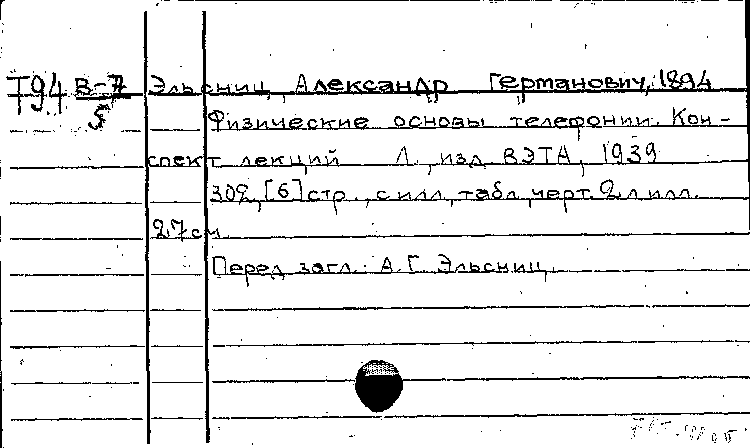 Т94 В-7 Эльсниц, Александр Германович, 1894
5 Физические основы телефонии. Кон-
спект лекций Л., изд. ВЭТА, 1939
302, [6] стр., с илл., табл., черт. 2 л. илл.
27 см.
Перед загл.: А. Г. Эльсниц.